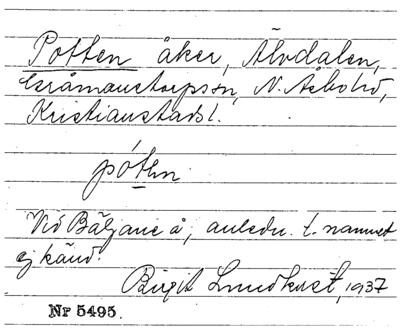 Potten åker, Älvdalen,
Gråmanstorps sn, N. Åsbo hd,
Kristianstads l.
póten
Vid Bäljane å, anledn. t. namnet
ej känd.
Birgit Lundkvist, 1937
Nr 5495.